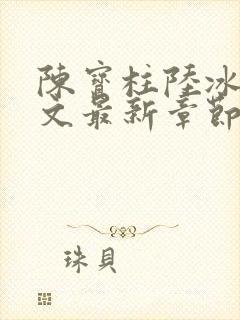 陳寶柱陸冰
文最新章節
珠貝